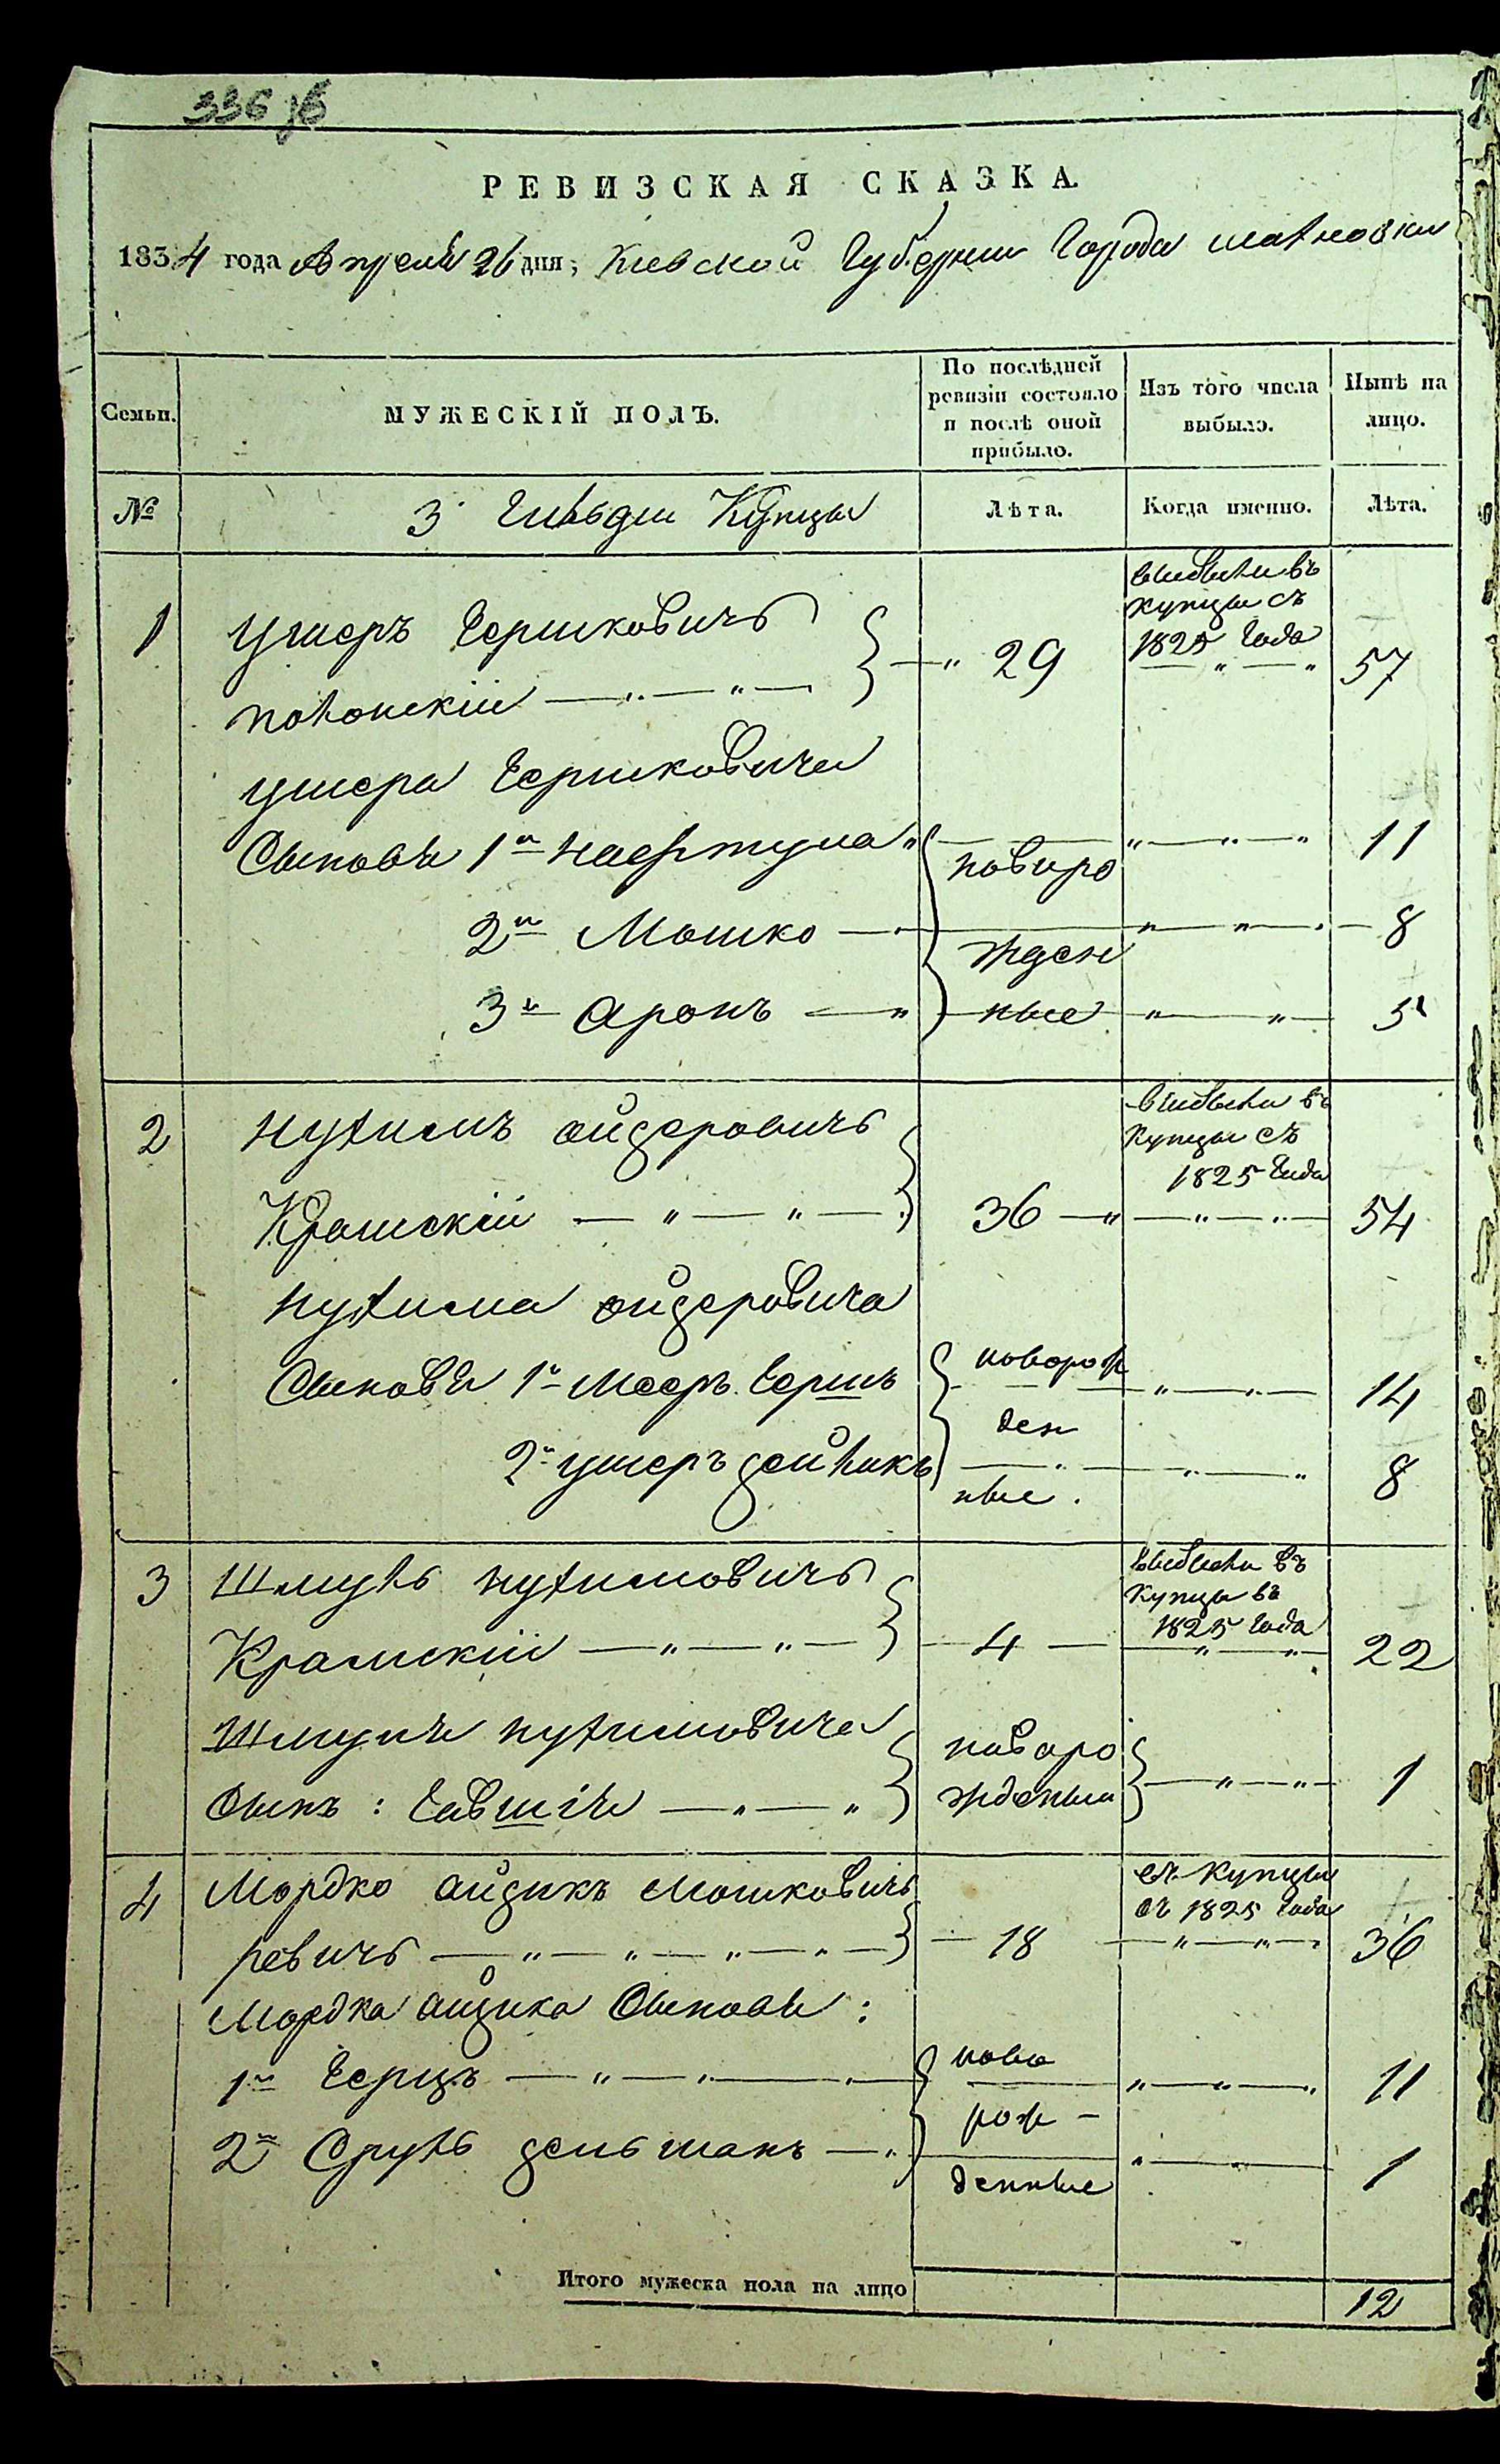 336 зв
РЕВИЗСКАЯ СКАЗКА.
1834 года Апреля 26 дня; Киевской Губернии Города
Семьи.
МУЖЕСКІЙ ПОЛЪ.
По послѣдней
ревизіи состояло
и послѣ оной
прибыло.
Изъ того числа
выбыло.
Нынѣ на
лицо.
№
3 Гильдіи Купцы
Лѣта.
Когда именно.
Лѣта.
выбыли въ
купцы съ
1825 года
1 Ушеръ Гершковичъ
полонскій 29 57
ушера Гершковича
Сыновья 1й Нафтула новоро 11
2й Мошко жден 8
3й Аронъ ные 5
выбыли въ
купцы съ
1825 Года
2 Нухимъ айзеровичъ
Крамскій 36 54
Нухима айзеровича
Сыновья 1й Мееръ Гершъ новорож 14
ден
2й ушеръ зейликъ 8
ные.
выбыли въ
купцы въ
1825 Года
3 Шмуль нухимовичъ
Крамскій 4 22
Шмуля нухимовича новоро
Сынъ: Евшія жденый 1
купцы
съ 1825 Года
4 Мордко айзикъ Мошковичъ
ревичъ 18 36
Мордка айзика Сыновья:
1й Герцъ ново 11
рож-
2й Сруль зельманъ 1
денные
Итого мужеска пола на лицо 12